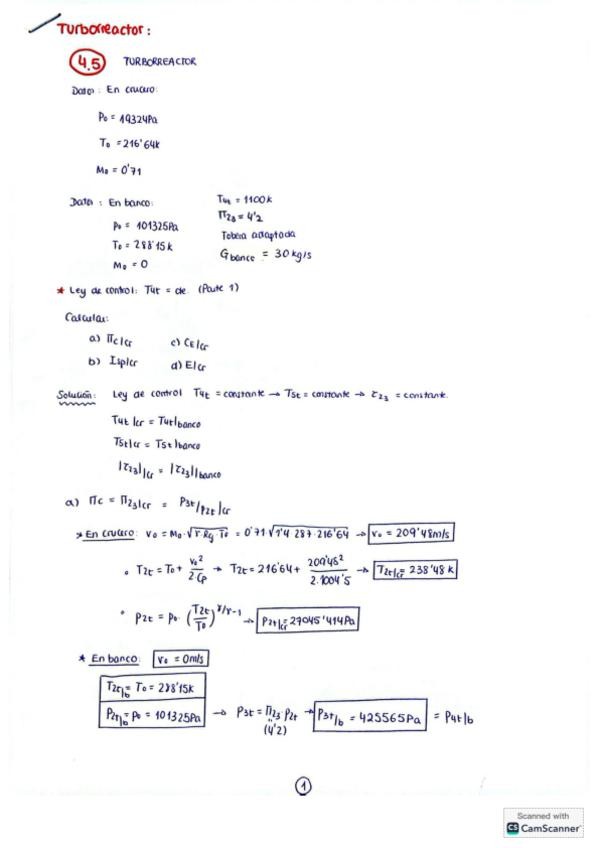 Turborreactor:
4.5 TURBORREACTOR
Datos: En crucero:
P₀ = 19324Pa
T₀ = 216'64K
M₀ = 0'71
Datos: En banco:
P₀ = 101325Pa
T₀ = 288'15K
M₀ = 0
T4t = 1100K
Π23 = 4'2
Tobera adaptada
Gbanco = 30kg/s
* Ley de control: T4t = cte. (Parte 1)
Calcular:
a) Πc|cr c) CE|cr
b) Isp|cr d) E|cr
Solución: Ley de control T4t = constante → T5t = constante → τ23 = constante.
T4t|cr = T4t|banco
T5t|cr = T5t|banco
|τ23||cr = |τ23||banco
a) Πc = Π23|cr = P3t/P2t|cr
* En crucero: v₀ = M₀·√γ·Rg·T₀ = 0'71·√1'4·287·216'64 → v₀ = 209'48m/s
• T2t = T₀ + v₀²/2·Cp → T2t = 216'64 + 209'48²/2·1004'5 → T2t|cr = 238'48K
• P2t = P₀·(T2t/T₀)^γ/γ-1 → P2t|cr = 27045'414Pa
* En banco: v₀ = 0m/s
T2t|b = T₀ = 288'15K
P2t|b = P₀ = 101325Pa → P3t = Π23·P2t → P3t|b = 425565Pa = P4t|b
(4'2)
1
Scanned with
CS CamScanner